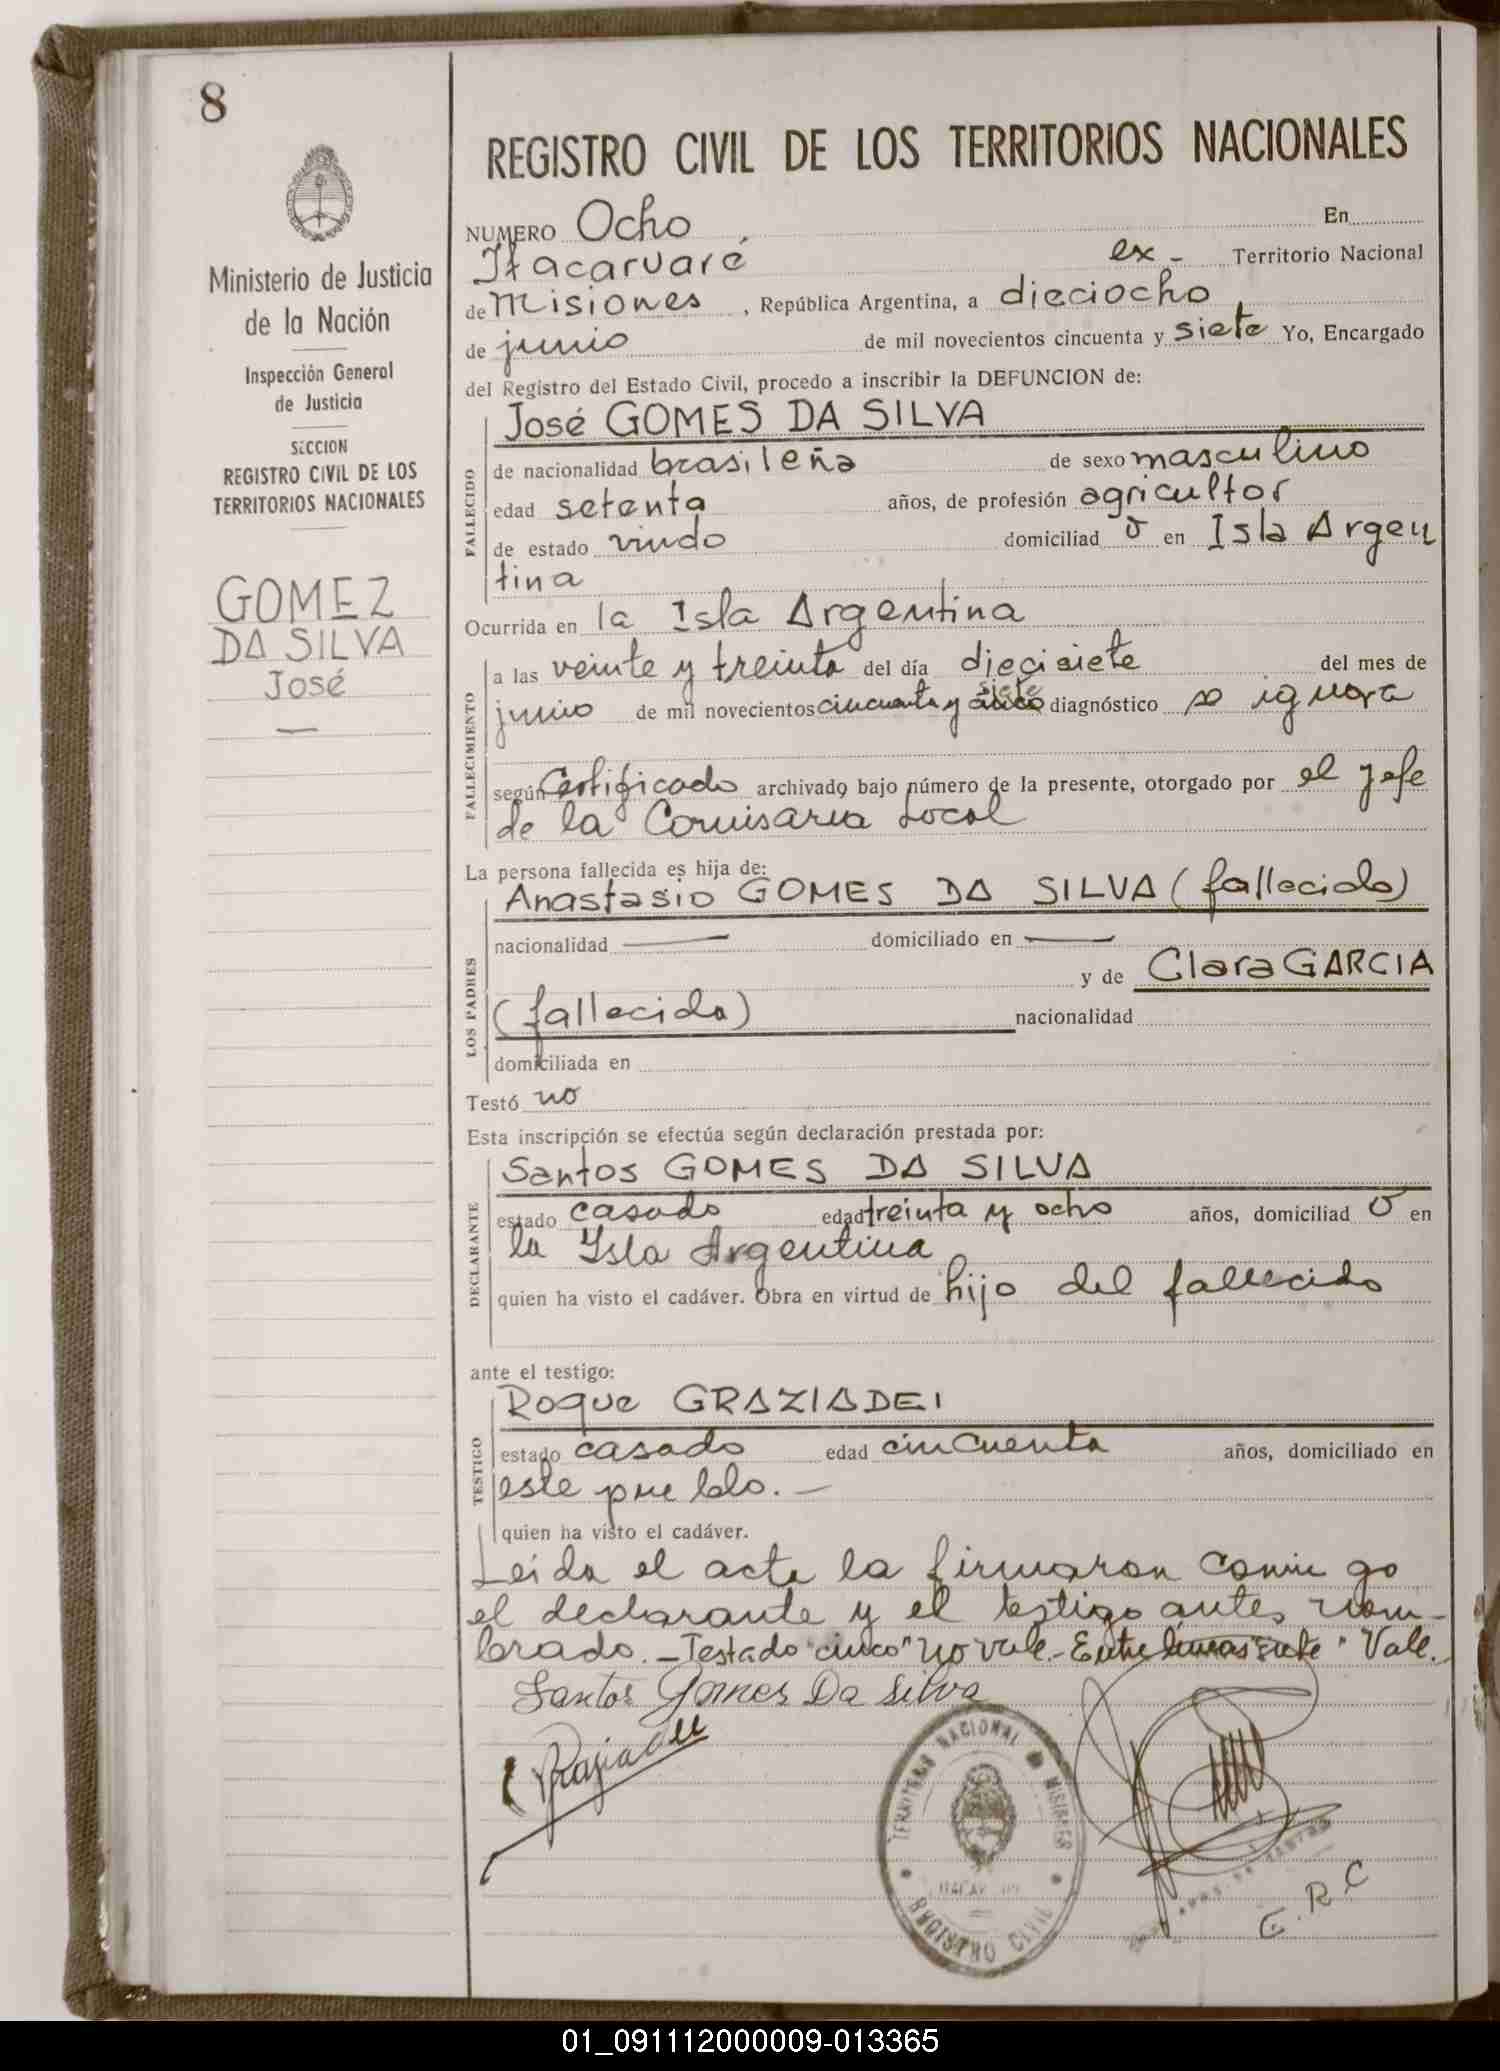 8
Ministerio de Justicia
de la Nación
Inspección General
de Justicia
SECCION
REGISTRO CIVIL DE LOS
TERRITORIOS NACIONALES
GOMEZ
DA SILVA
José
REGISTRO CIVIL DE LOS TERRITORIOS NACIONALES
NUMERO Ocho En
Itacaruaré ex - Territorio Nacional
de Misiones, República Argentina, a dieciocho
de junio de mil novecientos cincuenta y siete Yo, Encargado
del Registro del Estado Civil, procedo a inscribir la DEFUNCION de:
José GOMES DA SILVA
FALLECIDO
de nacionalidad brasileña de sexo masculino
edad setenta años, de profesión agricultor
de estado viudo domiciliad o en Isla Argen
tina
Ocurrida en la Isla Argentina
FALLECIMIENTO
a las veinte y treinta del día diecisiete del mes de
siete
junio de mil novecientos cincuenta y cinco diagnóstico se ignora
según Certificado archivado bajo número de la presente, otorgado por el jefe
de la Comisaria Local
La persona fallecida es hija de:
LOS PADRES
Anastasio GOMES DA SILVA (fallecido)
nacionalidad — domiciliado en —
y de Clara GARCIA
(fallecida) nacionalidad
domiciliada en
Testó no
Esta inscripción se efectúa según declaración prestada por:
DECLARANTE
Santos GOMES DA SILVA
estado casado edad treinta y ocho años, domiciliad o en
la Isla Argentina
quien ha visto el cadáver. Obra en virtud de hijo del fallecido
ante el testigo:
TESTIGO
Roque GRAZIADEI
estado casado edad cincuenta años, domiciliado en
este pueblo. —
quien ha visto el cadáver.
Leida el acta la firmaron conmigo
el declarante y el testigo antes nom-
brado. - Testado "cinco" no vale.- Entre lineas "siete" Vale.
Santos Gomes Da Silva
TERRITORIO NACIONAL DE MISIONES
REGISTRO CIVIL
E.R.C
01_091112000009-013365